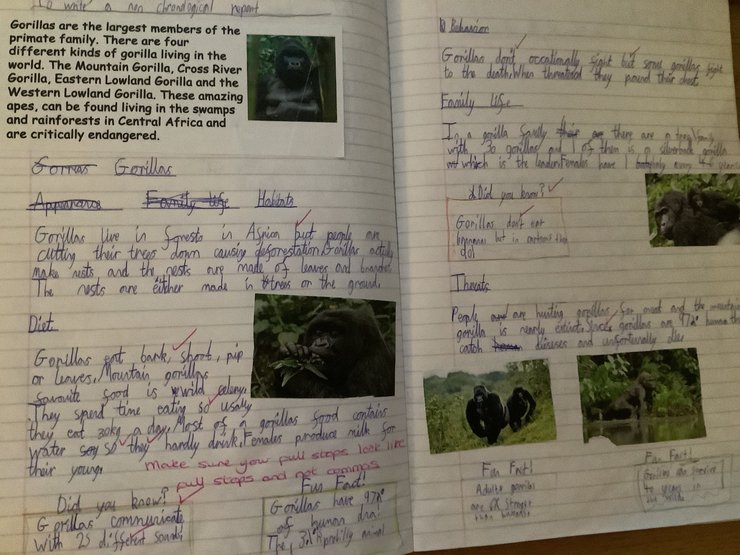 To write a non chronological report
Gorillas are the largest members of the
primate family. There are four
different kinds of gorilla living in the
world. The Mountain Gorilla, Cross River
Gorilla, Eastern Lowland Gorilla and the
Western Lowland Gorilla. These amazing
apes, can be found living in the swamps
and rainforests in Central Africa and
are critically endangered.
Gorillas
Appearance Family life Habitats
Gorillas live in forests in Africa but people are
cutting their trees down causing deforestation. Gorillas actually
make nests and the nests are made of leaves and
The nests are either made in trees or the ground.
Diet
Gorillas eat bark, shoot, pip
or leaves, Mountain gorillas
favourite food is wild celery.
They spend time eating so usally
they eat 30kg a day, Most of a gorillas food contains
water so they hardly drink, Females produce milk for
their young.
Make sure your full stops look like
full stops and not commas
Did you know?
Gorillas communicate
with 25 different sounds
Fun Fact!
Gorillas have 97%
of human dna!
The 3rd
Behaviour
Gorillas don't occationally fight but some gorillas fight
to the death. When threatened they pound their chest.
Family life
In a gorilla family there are a
with 30 gorillas and 1 of them is a silverback gorilla
which is the leader. Females have 1 every 4-6 years
Did you know?
Gorillas don't eat
bananas but in cartoons they
do!
Threats
People are hunting gorillas for meat and the mountain
gorilla is nearly extinct. Since gorillas are 97% human they
catch diseases and unfortunatly die.
Fun Fact!
Adult gorillas
are 6X stronger
than humans
Fun Fact!
Gorillas can survive
40 years in
the wild